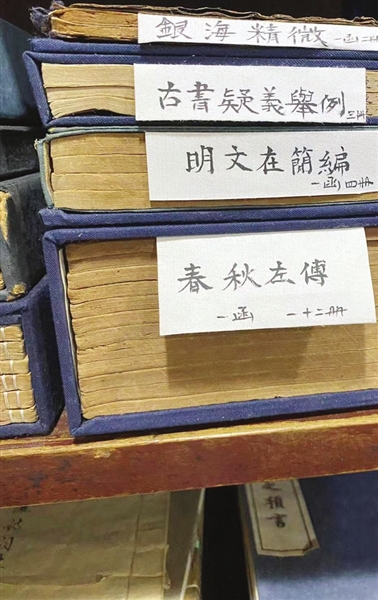 銀海精微
一函二冊
古書疑義舉例
三冊
明文在簡編
一函四冊
春秋左傳
一函 一十二冊
積書